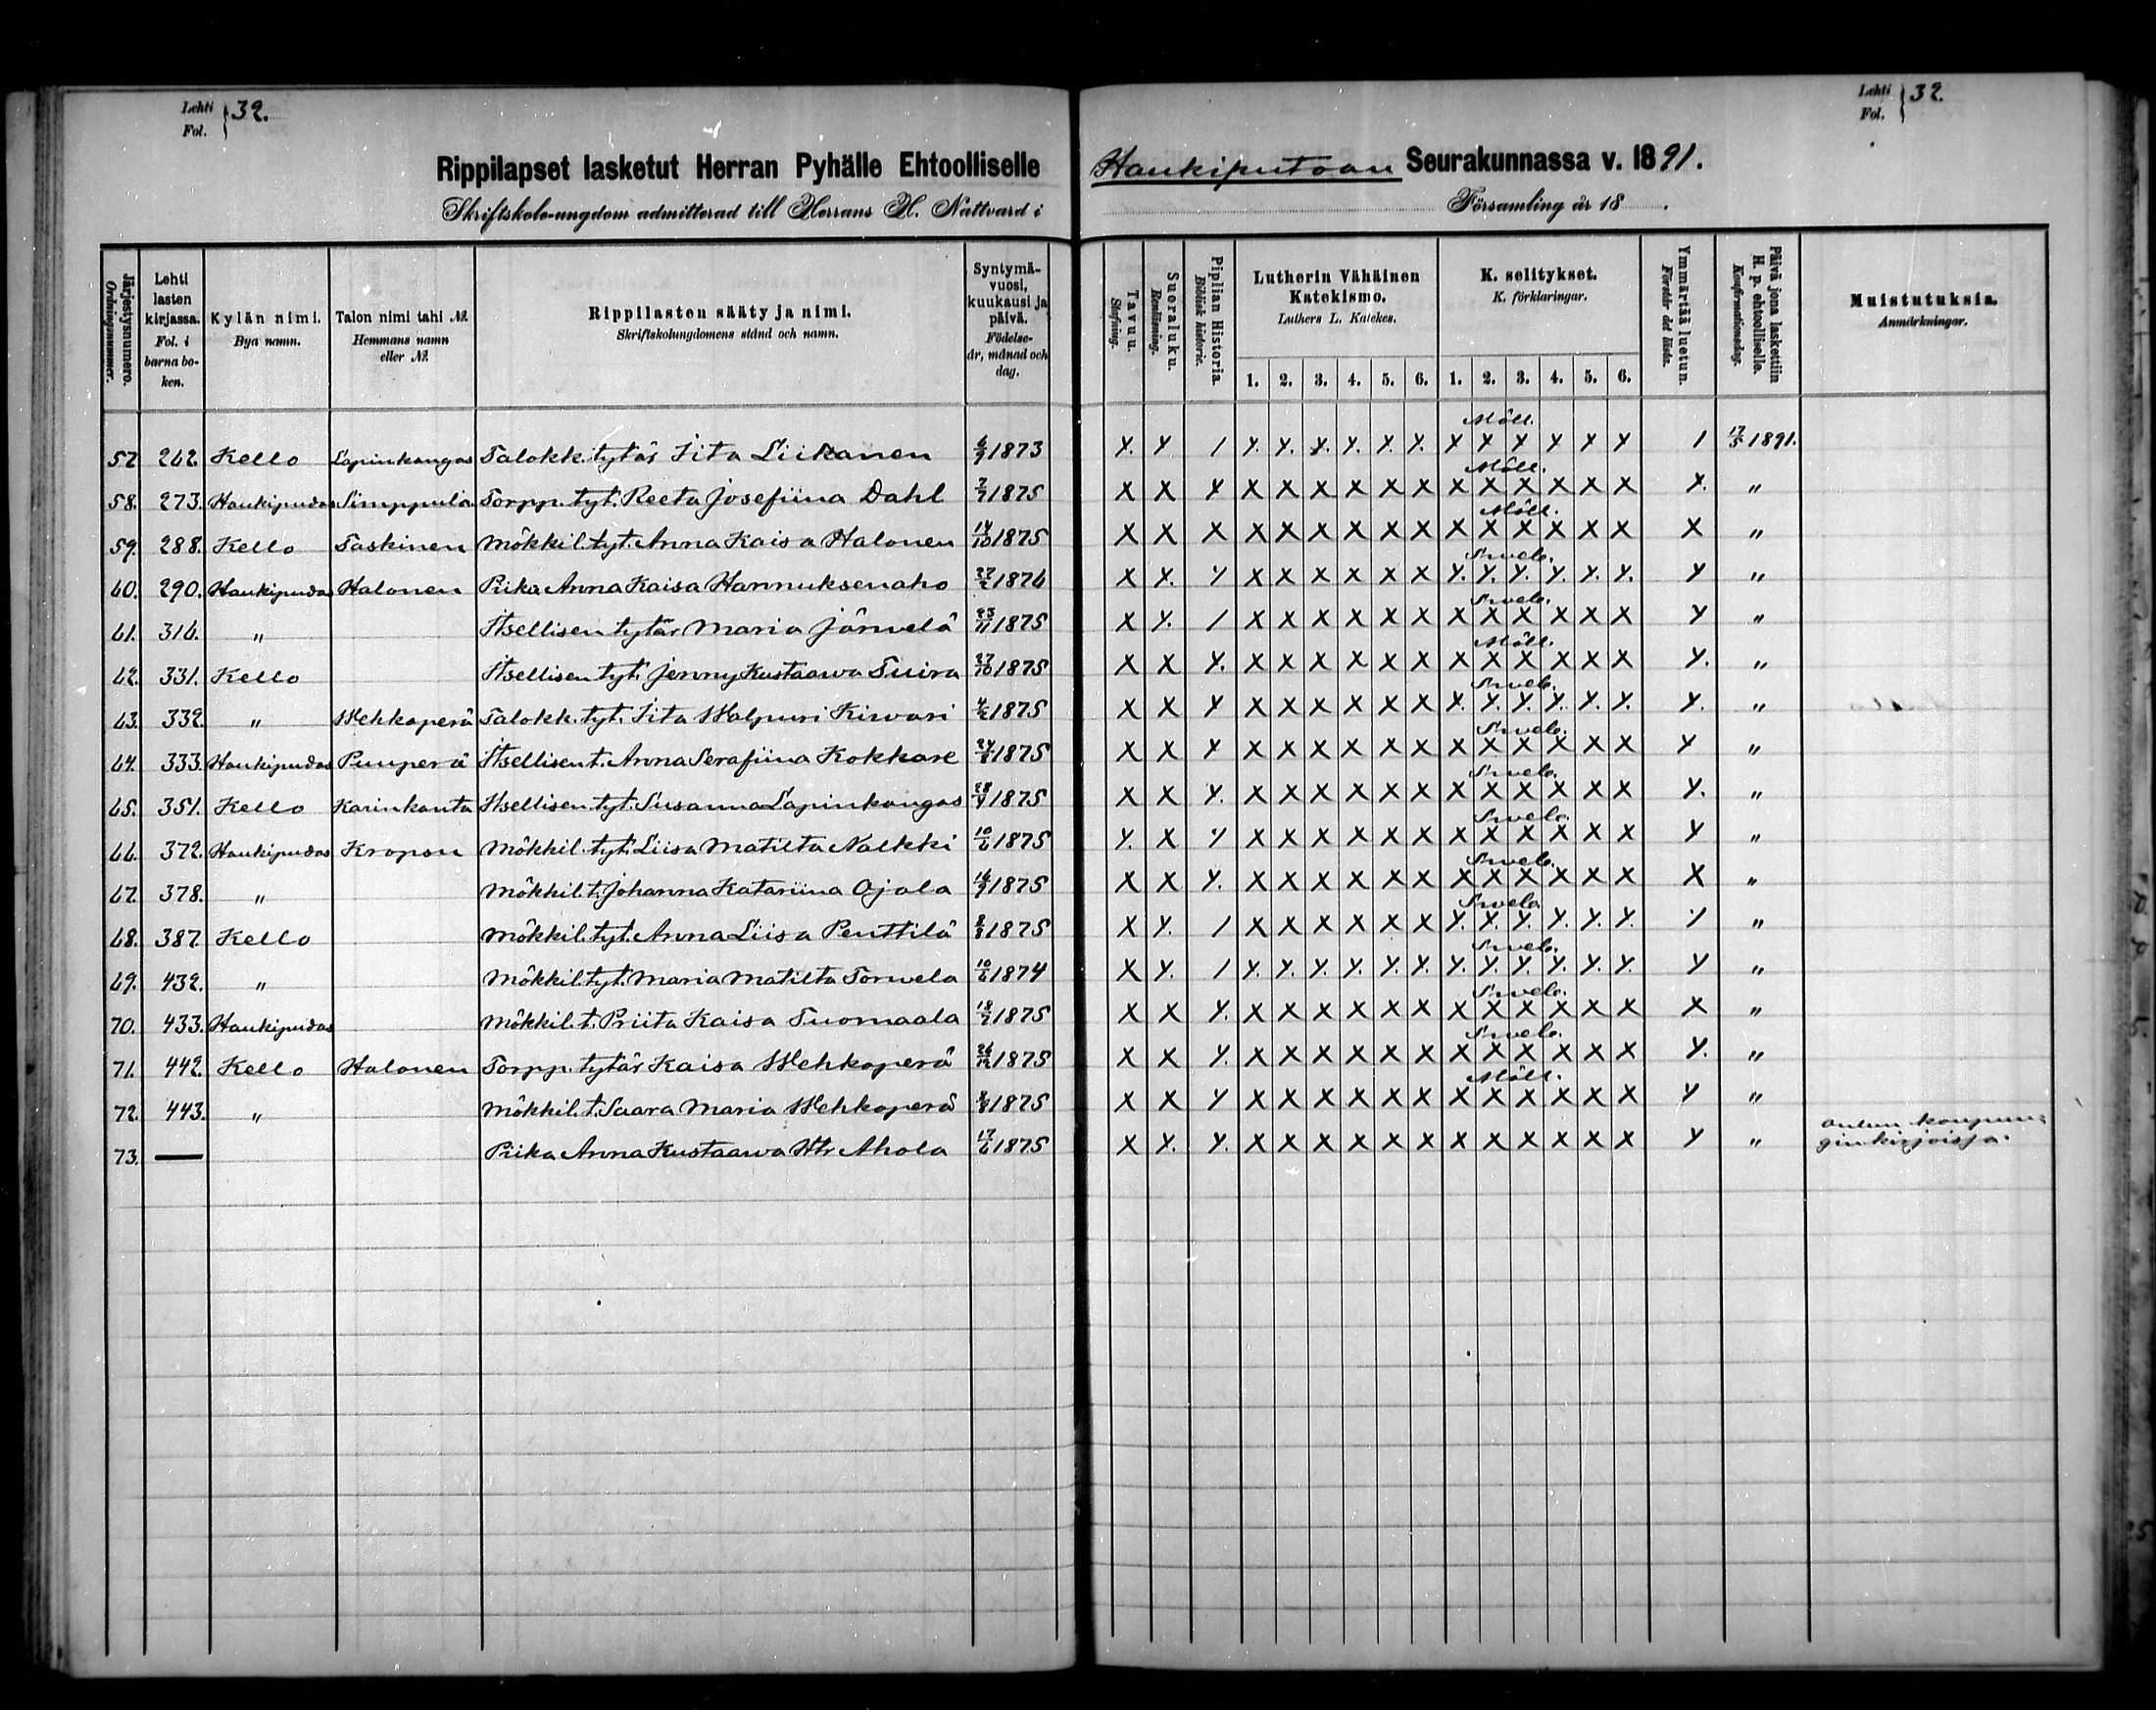 Lehti
Fol. } 32.
Lehti
Fol. } 32.
Rippilapset lasketut Herran Pyhälle Ehtoolliselle Haukiputaan Seurakunnassa v. 1891.
Skriftskole-ungdom admitterad till Herrans H. Nattvard i Församling år 18 .
Järjestysnumero. Ordningsnummer.
Lehti lasten kirjassa. Fol. i barna boken.
Kylän nimi. Bya namn.
Talon nimi tahi №. Hemmans namn eller №.
Rippilasten sääty ja nimi. Skriftskolungdomens stånd och namn.
Syntymävuosi, kuukausi ja päivä. Födelseår, månad och dag.
Tavuu. Stafning.
Suoraluku. Renläsning.
Piplian Historia. Biblisk historie.
Lutherin Vähäinen Katekismo. Luthers L. Katekes.
1. 2. 3. 4. 5. 6.
K. selitykset. K. förklaringar.
1. 2. 3. 4. 5. 6.
Ymmärtää luetun. Förstår det lästa.
Päivä jona laskettiin H. p. ehtoolliselle. Konfirmationsdag.
Muistutuksia. Anmärkningar.
Möll.
57. 262. Kello Lapinkangas Talokk. tytär Iita Liikanen 6/9 1873 X. Y 1 Y. Y. Y. Y. Y. Y. X X X X X X 1 17/5 1891.
Möll.
58. 273. Haukipudas Simppula Torpp. tyt. Reeta Josefiina Dahl 7/7 1875 X X Y X X X X X X X X X X X X X. "
Möll.
59. 288. Kello Taskinen Mökkil. tyt. Anna Kaisa Halonen 14/10 1875 X X X X X X X X X X X X X X X X "
60. 290. Haukipudas Halonen Piika Anna Kaisa Hannuksenaho 27/2 1876 X Y. Y X X X X X X Y. Y. Y. Y. Y. Y. Y "
61. 316. " Itsellisen tytär Maria Järvelä 25/11 1875 X Y. 1 X X X X X X X X X X X X Y "
Möll.
62. 331. Kello Itsellisen tyt. Jenny Kustaava Tuira 27/10 1875 X X Y. X X X X X X X X X X X X Y. "
63. 332. " Wehkaperä Talokk. tyt. Iita Walpuri Kiwari 1875 X X Y X X X X X X Y. Y. Y. Y. Y. Y. Y. "
64. 333. Haukipudas Puuperä Itsellisen t. Anna Serafiina Kokkare 1875 X X Y X X X X X X X X X X X X Y "
65. 351. Kello Karinkanta Itsellisen tyt. Susanna Lapinkangas 28/9 1875 X X Y. X X X X X X X X X X X X Y. "
66. 372. Haukipudas Kropsu Mökkil. tyt. Liisa Matilta Nalkki 10/6 1875 Y. X Y X X X X X X X X X X X X Y "
67. 378. " Mökkil. t. Johanna Katariina Ojala 16/9 1875 X X Y. X X X X X X X X X X X X X "
68. 387. Kello Mökkil. tyt. Anna Liisa Penttilä 8/8 1875 X Y. 1 X X X X X X Y. Y. Y. Y. Y. Y. Y "
69. 432. " Mökkil. tyt. Maria Matilta Torwela 10/6 1874 X Y. 1 Y. Y. Y. Y. Y. Y. Y. Y. Y. Y. Y. Y. Y "
70. 433. Haukipudas Mökkil. t. Priita Kaisa Tuomaala 18/7 1875 X X Y. X X X X X X X X X X X X X "
71. 442. Kello Halonen Torpp. tytär Kaisa Wehkaperä 26/12 1875 X X Y. X X X X X X X X X X X X Y. "
Möll.
72. 443. " Mökkil. t. Saara Maria Wehkaperä 1875 X X Y X X X X X X X X X X X X Y "
73. — Piika Anna Kustaawa Htr Ahola 17/6 1875 X Y. Y. X X X X X X X X X X X X Y " Oulun kaupungin kirjoissa.